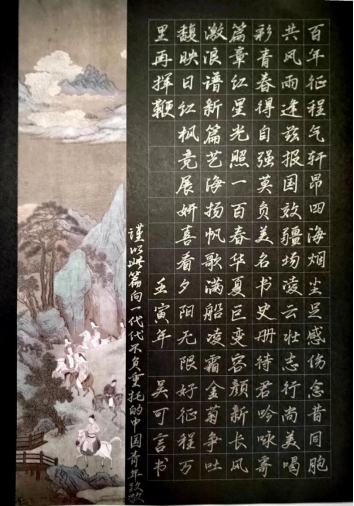 百年征程气轩昂四海烟尘足感伤忿昔同胞
共风雨逢兹报国效疆场凌云壮志行尚美喝
彩青春得自强英美名书史册待君吟咏寄
篇章红星光照一百春华夏巨变容颜新长风
激浪谱新篇艺海扬帆歌满船凌霜金菊争吐
馥映日红枫竞展妍喜看夕阳无限好征程万
里再挥鞭 壬寅年 吴可言书
谨以此篇向一代代不负重托的中国青年致敬